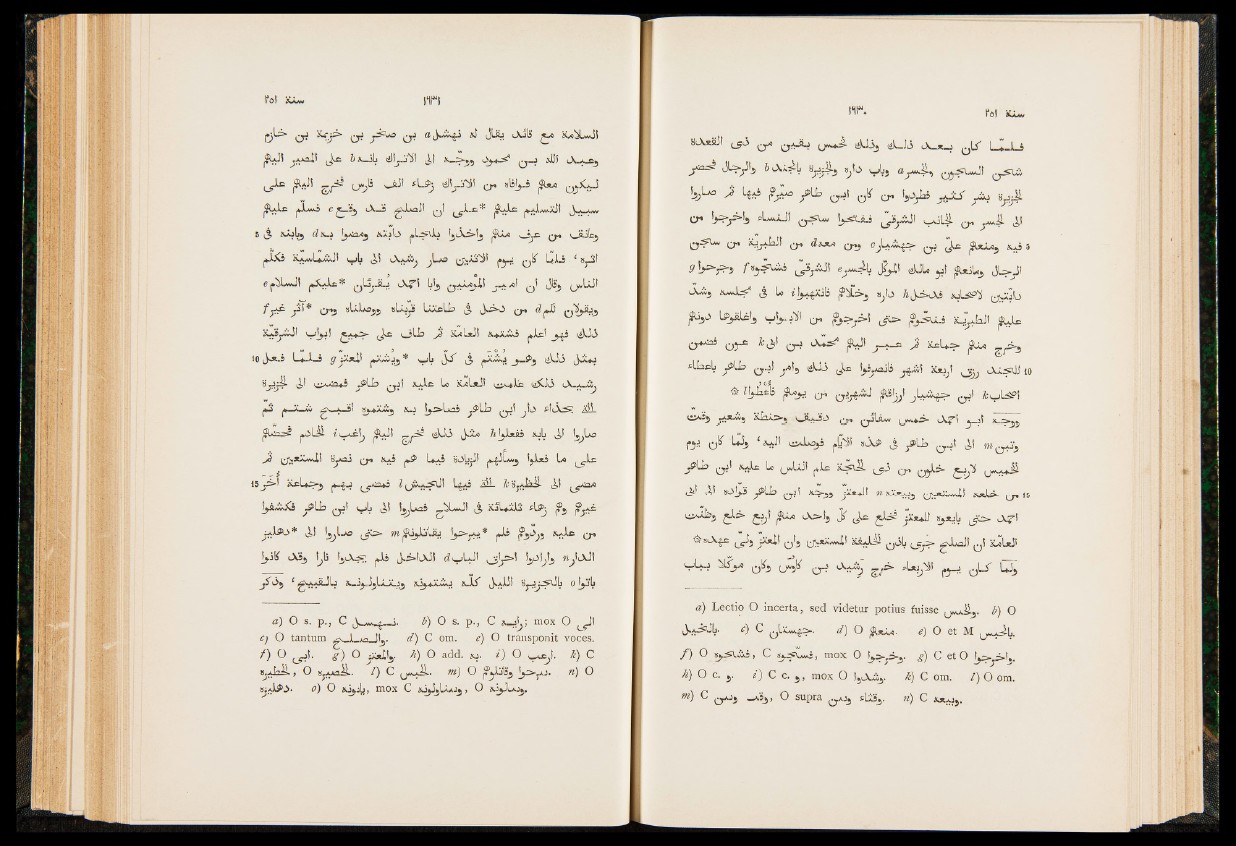 سنة ٢٥١ ١٦٣٠
فلمّا كان بعد ذلك وذلك لخمس بقين من ذى القعدة
شحن السجون والجسر a وباب داره والجزيرة بالجند b والرجال فحضر
الجزيرة بشر كثير فطردوا من كان ابن طاهر صيّرهم فيها ثم صاروا
الى الجسر من الجانب الشرقى ففتحوا سجن النساء واخرجوا من
5 فيه ومنعهم علىّ بن جهشيار c ومن معه d من الطبريّة من سجن
الرجال ومانعهم ابو مالك الموكّل بالجسر e الشرقى فشجّوه f وجرحوا g
دابّتين لاصحابه فدخل h داره وخلّاهم فانتهبوا i ما فى مجلسه وشدّ
عليهم الطبريّة فنحّوهم حتى اخرجوهم من الابواب واغلقوها دونهم
وخرج منهم جماعة ثم عبر اليهم محمّد بن ابى k عون فضمن
10 للجند رزق اربعة اشهر فانصرفوا على ذلك وامر ابن طاهر باعطاء
اصحاب k ابن جهشيار ارزاقهم لشهرين من يومهم فأُعطوا l ☆
ووجّه ابو احمد خمس سفائن من دقيق وحنطة وشعير وقتّ
وتبن m الى ابن طاهر فى هذه الايّام فوصلت اليه، ولمّا كان يوم
الخميس لاربع خلون من ذى الحجّة علم الناس ما عليه ابن طاهر
15 من خلعه المستعين وبيعته n للمعتز ووجّه ابن طاهر قوّاده الى ابى
احمد حتى بايعوه للمعتز فخلع على كلّ واحد منهم اربع خلع وظنّت
العامّة ان الصلح جرى باذن الخليفة المستعين وان المعتز ولىّ عهده ☆
ولمّا كان يوم الاربعاء خرج رشيد بن كاوس وكان موكّلا بباب
a) Lectio O incerta, sed videtur potius fuisse والحبس. b) O
بالخيل. c) C جهستان. d) O منعهم. e) O et M بالحبس.
f) O, C, mox O وخرجوا. g) C et O واخرجوا.
h) O c. و. i) C c. و, mox O وشدوا. k) C om. l) O om.
m) C, O supra وقثاء. n) C وبيعه.
سنة ٢٥١ ١٦٣١
السلامة مع قائد يقال له نهشل a بن صخر بن خزيمة بن خازم
وعبد الله بن محمود ووجّه الى الاتراك بانه b على المصير اليهم
ليكون معهم فوافاه من الاتراك زهاء الف فارس فخرج اليهم على
سبيل التسليم عليهم *على ان الصلح قد وقع c فسلّم عليهم
5 وعانق من عرف منهم واخذوا بلجام دابّته ومضوا به d وبابنه فى
اثره، فلمّا كان يوم الاثنين صار رشيد الى باب الشمّاسيّة فكلّم
الناس وقال ان امير المؤمنين وابا احمد يقرئان *عليكم السلام e
ويقولان لكم d من دخل فى طاعتنا قرّبناه ووصلناه *ومن آثر غير f
ذلك فهو اعلم فشتمته العامّة ثم طاف على جميع ابواب الشرقيّة
10 بمثل ذلك وهو يُشتم فى كلّ باب *ويُشتم المعتز g فلمّا فعل
رشيد ذلك علمت العامّة ما عليه ابن طاهر فمضت الى الجزيرة
التى بحذاء دار ابن طاهر فصاحوا به وشتموه اقبح شتم ثم
صاروا الى بابه ففعلوا h مثل ذلك فخرج اليهم راغب i الخادم فحضّهم
على ما فعلوا وسألهم الزيادة فيما هم فيه من نصرة المستعين ثم
15 مضى الى الحظيرة k التى فيها الجيش l فمضى بهم وجماعة أُخر
غيرهم وهم زهاء ثلثمائة فى السلاح فصاروا الى باب ابن طاهر فكشفوا
من عليه وردّوهم فلم *يبرحوا يقاتلونهم m حتى صاروا الى *دهليز
الدار n وارادوا احراق الباب d الداخل فلم يجدوا نارا وقد كانوا
باتوا o بالجزيرة الليل كلّه يشتمونه ويتناولونه بالقبيح، وذُكر
a) O s. p., C سهل. b) O s. p., C رايه; mox O الى
c) O tantum والصلح. d) C om. e) O transponit voces.
f) O ابى. g) O والمعتز. h) O add. به. i) O ارعب. k) C
الحطيره, O الحصيره. l) C الحبس. m) O يبرحوا وقاتلوهم. n) O
دهليزه. o) O, mox C, O